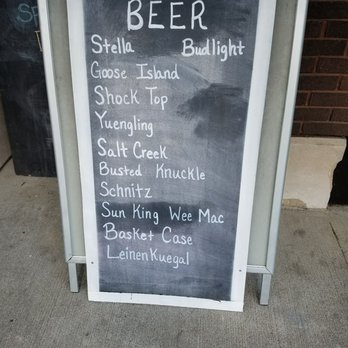 BEER
Stella Budlight
Goose Island
Shock Top
Yuengling
Salt Creek
Busted Knuckle
Schnitz
Sun King Wee Mac
Basket Case
LeinenKuegal
SP